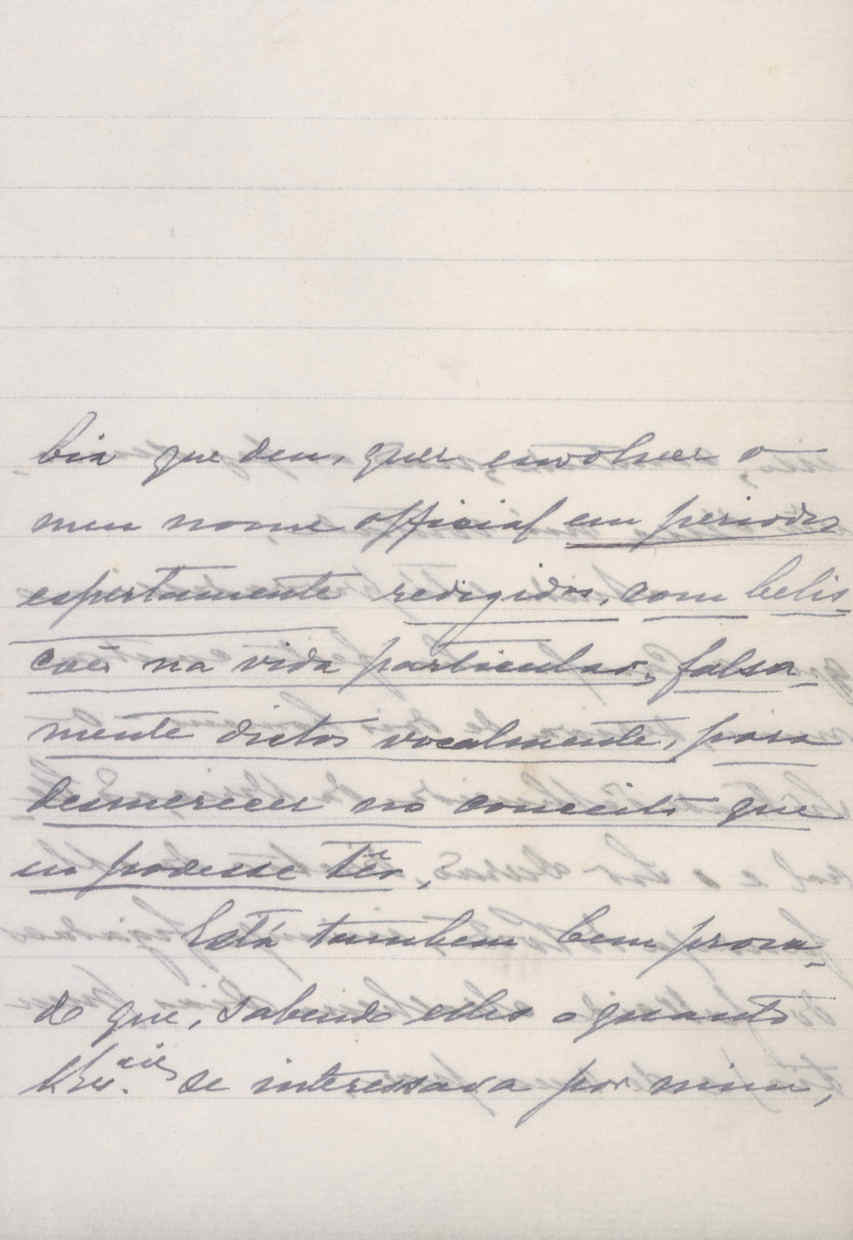 bia que deu, quer envolver o
meu nome official em periodos
espertamente redigidos, com belis
cões na vida particular, falsa-
mente dictos vocalmente, para
desmerecer no conceito que
eu podesse têr.
Está tambem bem prova-
do que, sabendo elles o quanto
se interessava por mim,